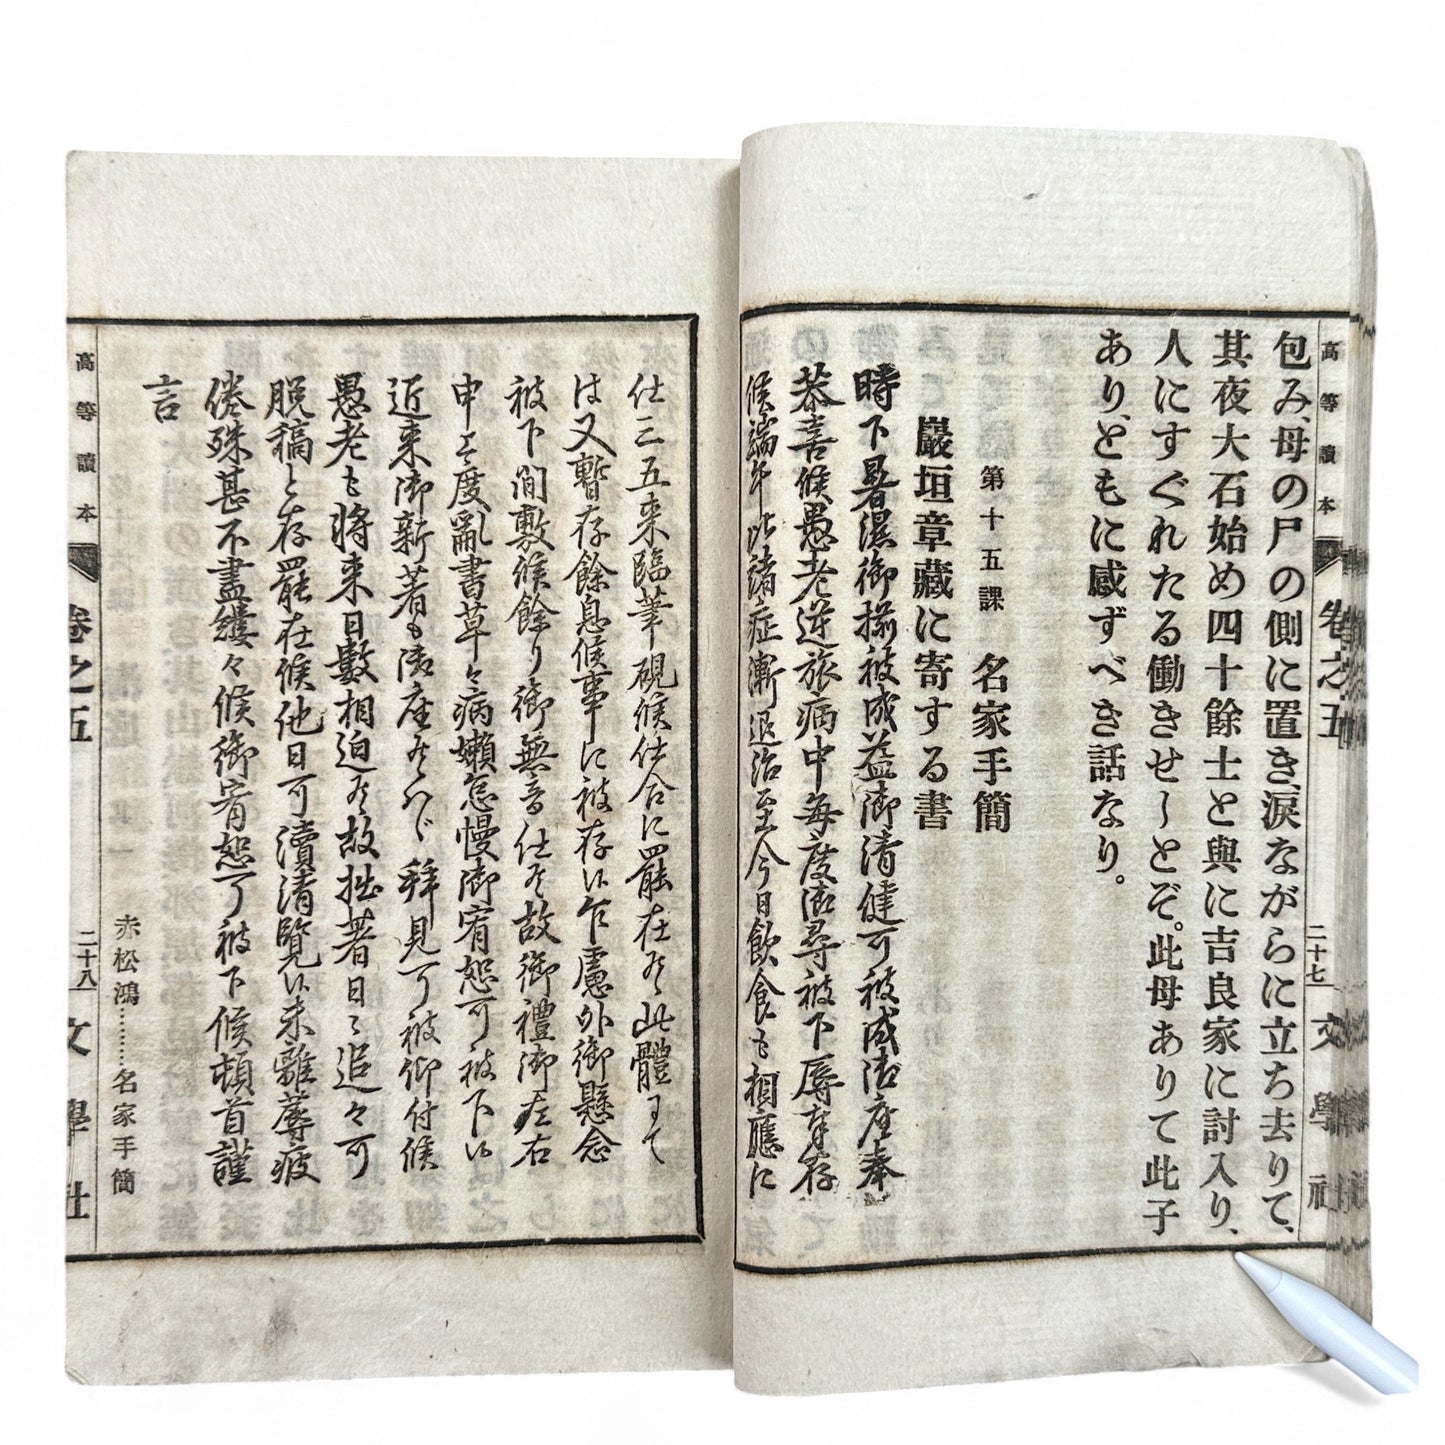 高等讀本
卷之五
二十七
文學社
包み、母の尸の側に置き、涙ながらに立ち去りて、
其夜大石始め四十餘士と與に吉良家に討入り、
人にすぐれたる働きせしとぞ。此母ありて此子
あり、ともに感ずべき話なり。
第十五課 名家手簡
巖垣章藏に寄する書
時下暑濕御揃被成益御清健可被成御座奉
恭喜候愚老逆旅病中每度御尋被下辱奉存
候端午此諸症漸退治至今日飲食も相應に
仕三五來臨筆硯候仕合に罷在候此體にて
は又暫存餘息候事に被存候乍慮外御懸念
被下間敷候餘り御無音仕候故御禮御左右
申上度亂書草々病嬾怠慢御宥恕可被下候
近來御新著も御座候へゞ拜見可被仰付候
愚老も將來日數相迫候故拙著日々追々可
脱稿と存罷在候他日可瀆清覽候未離蓐疲
倦殊甚不盡縷々候御宥恕可被下候頓首謹
言
赤松鴻………名家手簡
高等讀本
卷之五
二十八
文學社